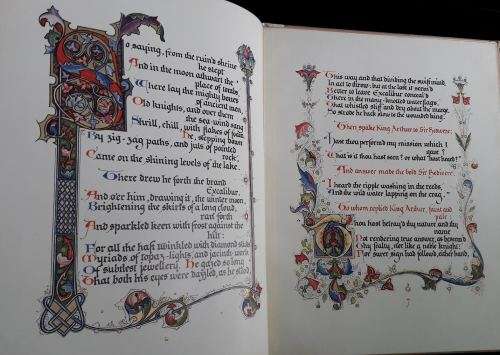 So saying, from the ruin'd shrine
he stept
And in the moon athwart the
place of tombs
Where lay the mighty bones
of ancient men,
Old knights, and over them
the sea-wind sang
Shrill, chill, with flakes of foam.
He, stepping down
By zig-zag paths, and juts of pointed
rock,
Came on the shining levels of the lake.
There drew he forth the brand
Excalibur,
And o'er him, drawing it, the winter moon,
Brightening the skirts of a long cloud,
ran forth
And sparkled keen with frost against the
hilt:
For all the haft twinkled with diamond sparks,
Myriads of topaz-lights, and jacinth-work
Of subtlest jewellery. He gazed so long
That both his eyes were dazzled, as he stood,
This way and that dividing the swift mind,
In act to throw: but at the last it seem'd
Better to leave Excalibur conceal'd
There in the many-knotted waterflags,
That whistled stiff and dry about the marge.
So strode he back slow to the wounded king.
Then spake King Arthur to Sir Bedivere:
Hast thou perform'd my mission which I
gave?
What is it thou hast seen? or what hast heard?
And answer made the bold Sir Bedivere:
I heard the ripple washing in the reeds,
And the wild water lapping on the crag.
To whom replied King Arthur, faint and
pale:
Thou hast betray'd thy nature and thy
name
Not rendering true answer, as beseem'd
Thy fealty, nor like a noble knight:
For surer sign had follow'd, either hand,